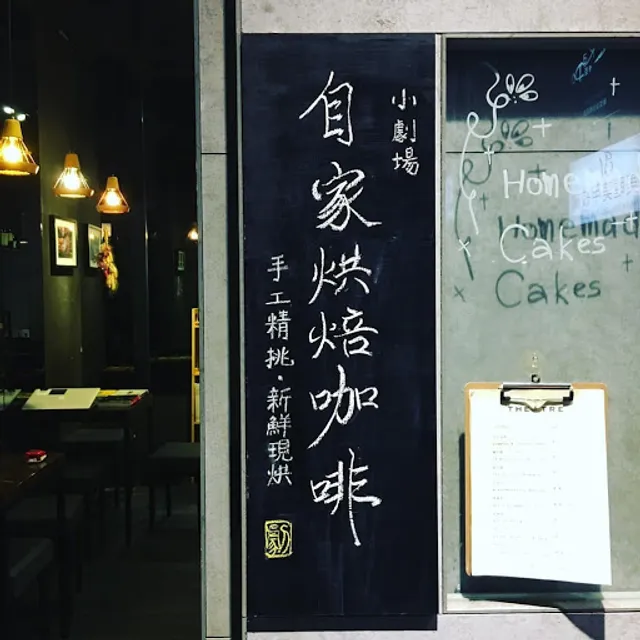 小劇場
自家烘焙咖啡
手工精挑·新鮮現烘
劇
Homemade
Cakes
THEATRE